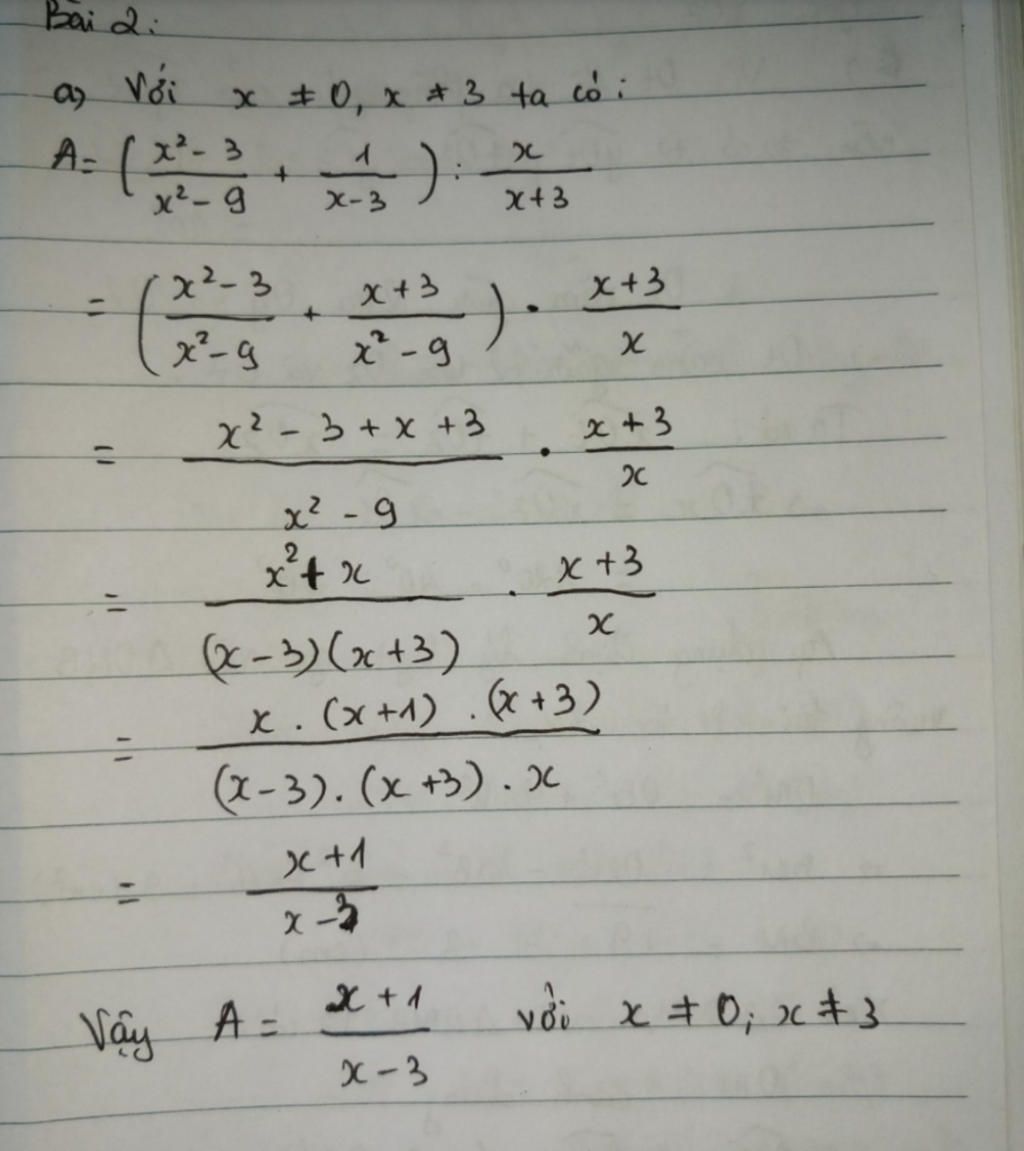 Bài 2:
a) Với x ≠ 0, x ≠ 3 ta có:
A = ( (x² - 3)/(x² - 9) + 1/(x - 3) ) : x/(x + 3)
= ( (x² - 3)/(x² - 9) + (x + 3)/(x² - 9) ) · (x + 3)/x
= (x² - 3 + x + 3)/(x² - 9) · (x + 3)/x
= (x² + x)/((x - 3)(x + 3)) · (x + 3)/x
= (x . (x + 1) . (x + 3))/((x - 3) . (x + 3) . x)
= (x + 1)/(x - 3)
Vậy A = (x + 1)/(x - 3) với x ≠ 0; x ≠ 3